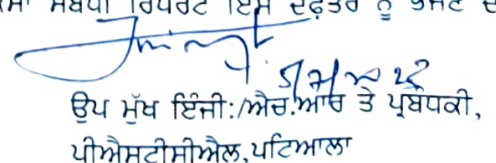 ਸਬੰਧੀ ਰਿਪੋਰਟ ਇਸ ਦਫ਼ਤਰ ਨੂੰ ਭੇਜਣ
ਉਪ ਮੁੱਖ ਇੰਜੀ:/ਐਚ.ਆਰ ਤੇ ਪ੍ਰਬੰਧਕੀ,
ਪੀਐਸਟੀਸੀਐਲ,ਪਟਿਆਲਾ